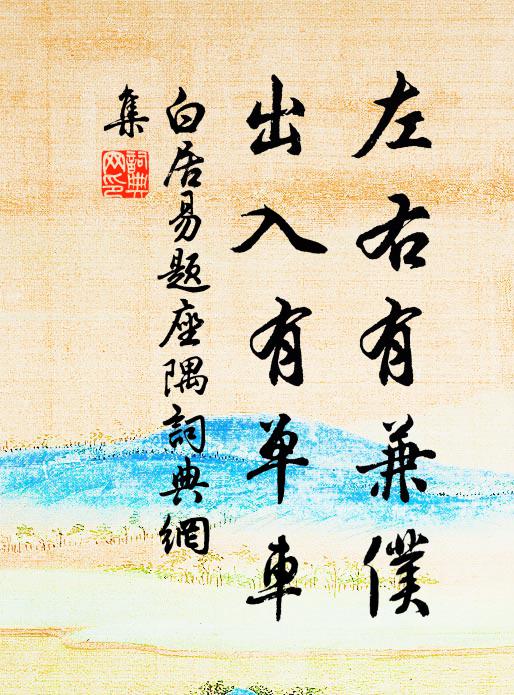 左右有兼僕
出入有单車
白居易題座隅詞典網
集
詞典
网印